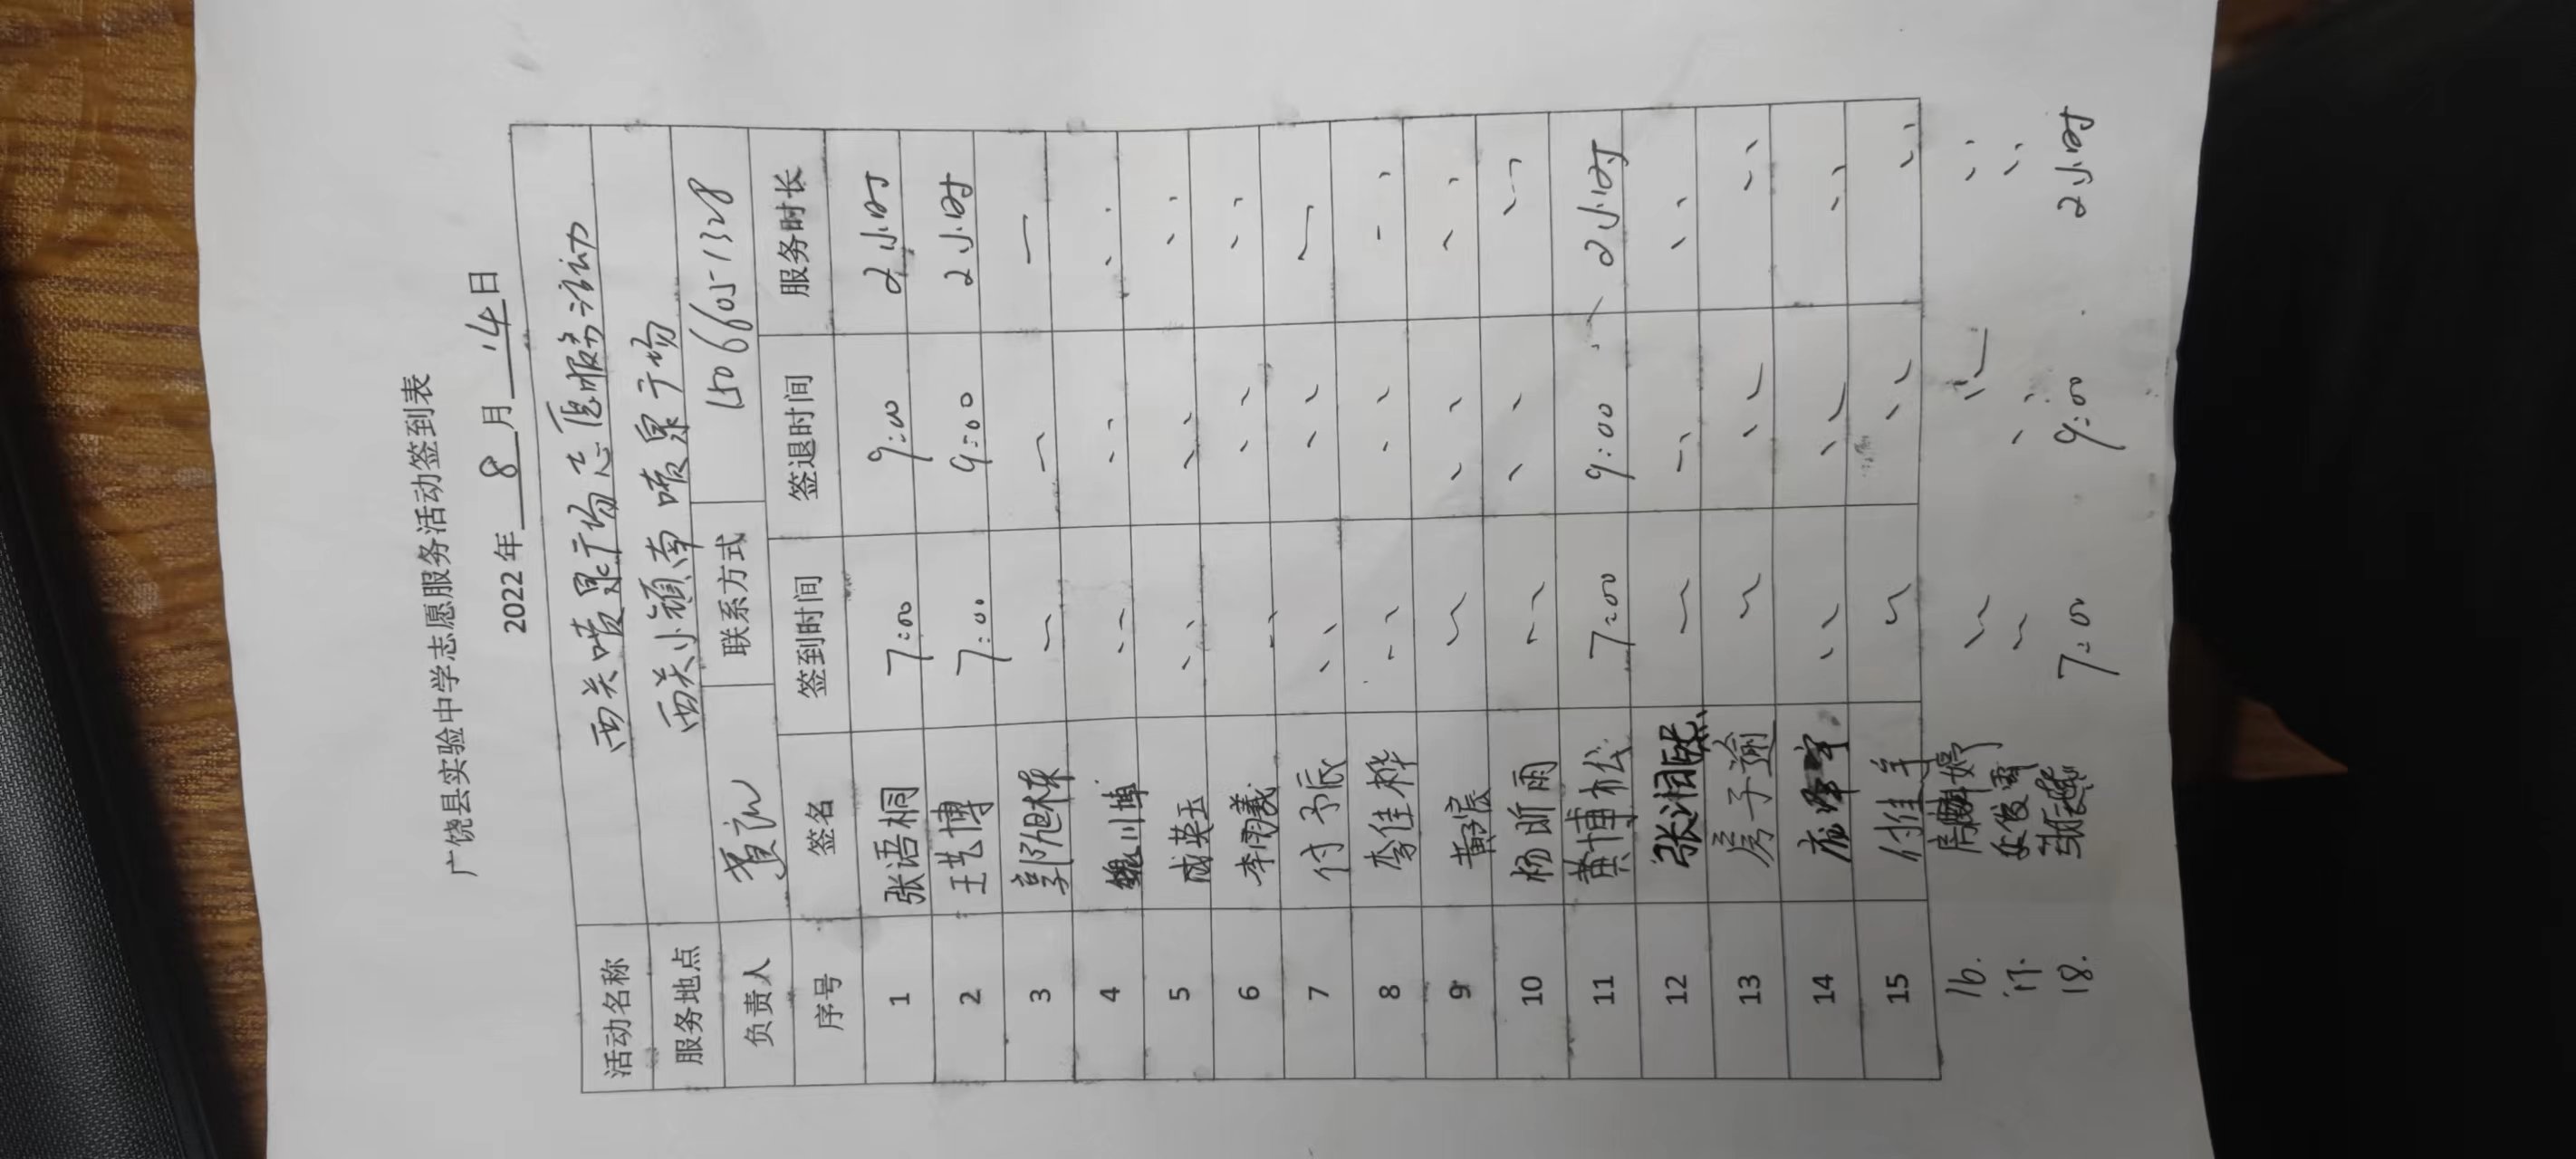 广饶县实验中学志愿服务活动签到表
2022年 8 月 14 日
活动名称 西关喷泉广场志愿服务活动
服务地点 西关小镇南喷泉广场
负责人 联系方式 15066051328
序号 签名 签到时间 签退时间 服务时长
1 张语桐 7:00 9:00 2小时
2 王艺博 7:00 9:00 2小时
3 郭旭林
4 魏川博 〃 〃 〃
5 成英玉 〃 〃 〃
6 李雨羲 〃 〃 〃
7 付予辰 〃 〃
8 李佳桦 〃 〃 〃
9 黄宸 〃 〃
10 杨昕雨 〃 〃 〃
11 黄博松 7:00 9:00 2小时
12 张湘熙 〃 〃
13 房子逾 〃 〃
14 〃 〃 〃
15 〃 〃
16. 婷 〃 〃
17. 〃 〃 〃
18. 7:00 9:00 2小时